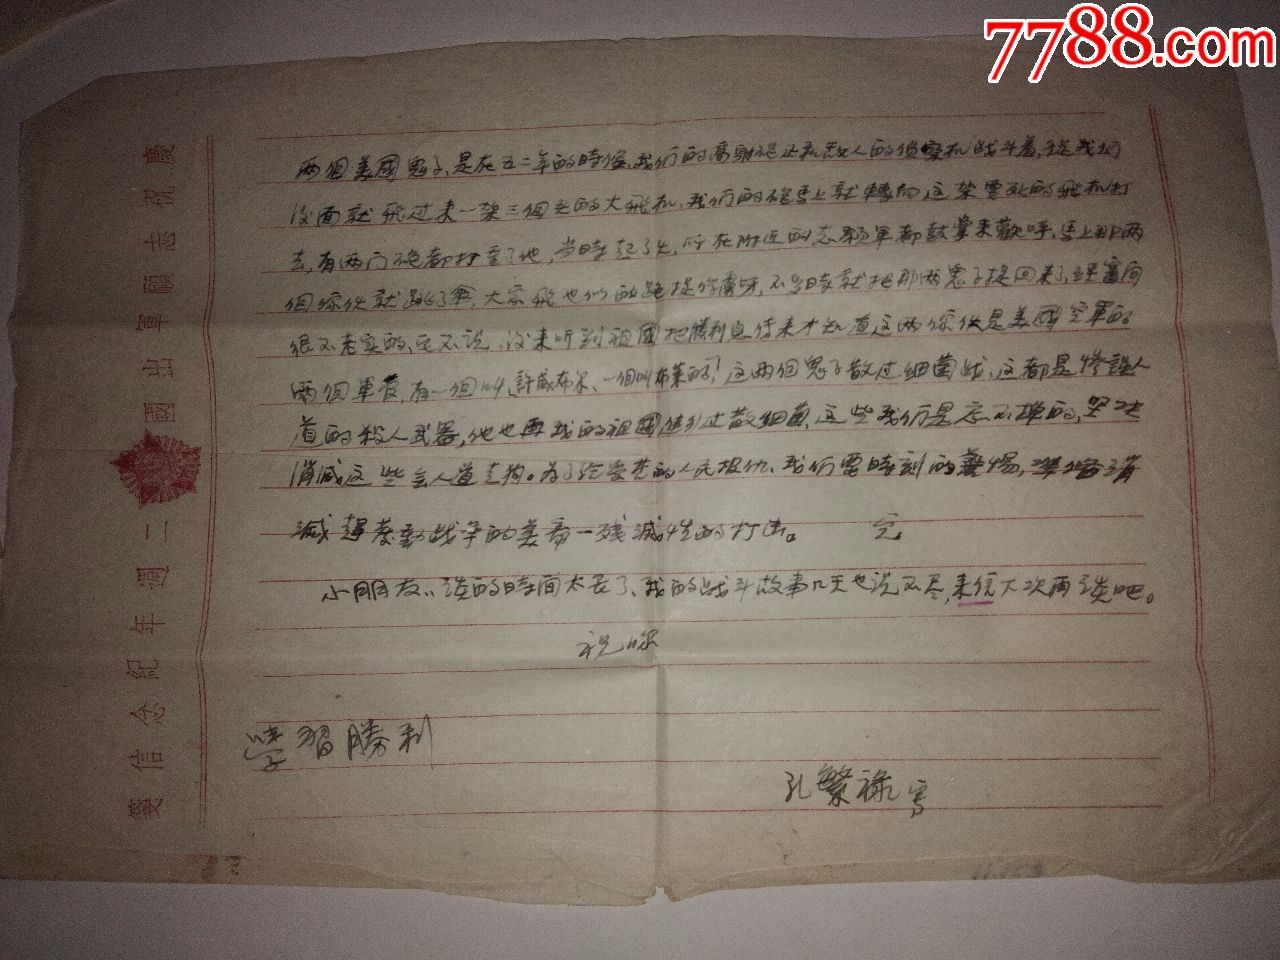 7788.com
慶祝志願軍出國二週年紀念信箋
两個美國鬼子,是在五二年的時候,我们的高射砲正和敌人的侦察机战斗着,從我们
後面就飛过来一架三個头的大飛机,我们的砲馬上就轉向这架
去,有两门砲都打至了他,当時起了火,所在附近的志愿軍都鼓掌来歡呼,馬上那两
個傢伙就跳了傘,大家 他们的 捉俘虜呀,不多時就把那两鬼子捉回来了,審问
很不老实的,它不说,後来听到祖國把勝利息传来才知道这两傢伙是美國空軍的
两個軍官,有一個叫,許威布尔、一個叫布莱的,这两個鬼子散过細菌战,这都是 人
道的殺人武器,他也再我的祖國進行过散細菌,这些我们是忘不掉的,坚决
消滅这些 人道走狗。为了给受苦的人民报仇,我们要時刻的警惕,準備消
滅 發動战争的美帝一 滅性的打击。 完
小朋友,谈的時间太长了,我的战斗故事几天也说不尽,来信大次再谈吧。
祝你
學習勝利
孔繁禄 写